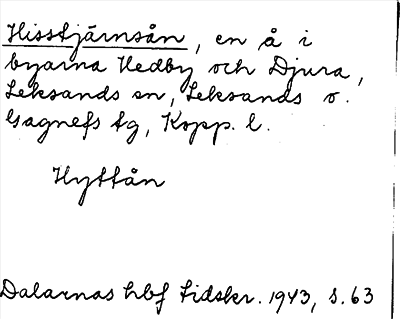 Hisstjärnsån, en å i
byarna Hedby och Djura,
Leksands sn, Leksands o.
Gagnefs tg, Kopp. l.
Hyttån
Dalarnas hbf tidskr. 1943, s. 63